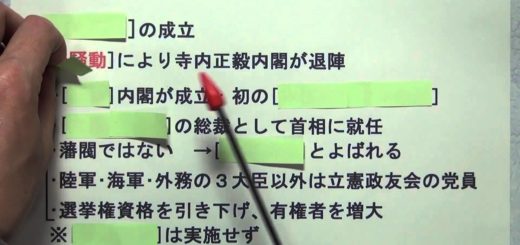 ]の成立
騒動]により寺内正毅内閣が退陣
[ ]内閣が成立 初の[ ]
の総裁として首相に就任
・藩閥ではない →[ とよばれる
・陸軍・海軍・外務の3大臣以外は立憲政友会の党員
・選挙権資格を引き下げ、有権者を増大
※ は実施せず